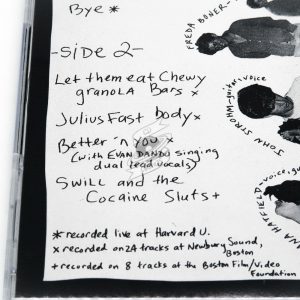 Bye*
-SIDE 2-
Let them eat Chewy
granola Bars x
Julius Fast body x
Better 'n you x
(with EVAN DANDO singing
dual lead vocals)
SWILL and the
Cocaine Sluts +
* recorded live at Harvard U.
x recorded on 24 tracks at Newbury Sound,
Boston
+ recorded on 8 tracks at the Boston Film/Video
Foundation
FREDA BONER -
JOHN STROHM - guitar, voice
NA HATFIELD, voice, gu